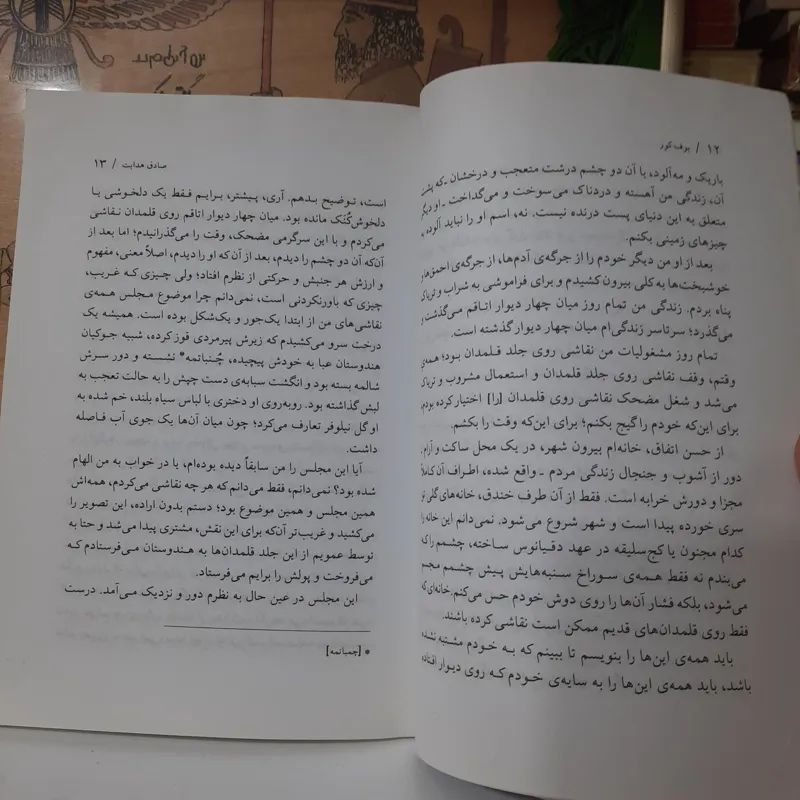 ۱۲ / بوف کور
باریک و مه‌آلود، با آن دو چشم درشت متعجب و درخشان ـ که پشت
آن، زندگی من آهسته و دردناک می‌سوخت و می‌گداخت ـ او دیگر
متعلق به این دنیای پست درنده نیست. نه، اسم او را نباید آلوده به
چیزهای زمینی بکنم.
بعد از او من دیگر خودم را از جرگه‌ی آدم‌ها، از جرگه‌ی احمق‌ها و
خوشبخت‌ها به کلی بیرون کشیدم و برای فراموشی به شراب و تریاک
پناه بردم. زندگی من تمام روز میان چهار دیوار اتاقم می‌گذشت و
می‌گذرد؛ سرتاسر زندگی‌ام میان چهار دیوار گذشته است.
تمام روز مشغولیات من نقاشی روی جلد قلمدان بود؛ همه‌ی
وقتم، وقف نقاشی روی جلد قلمدان و استعمال مشروب و تریاک
می‌شد و شغل مضحک نقاشی روی قلمدان [را] اختیار کرده بودم،
برای این‌که خودم را گیج بکنم؛ برای این‌که وقت را بکشم.
از حسن اتفاق، خانه‌ام بیرون شهر، در یک محل ساکت و آرام،
دور از آشوب و جنجال زندگی مردم ـ واقع شده، اطراف آن کاملاً
مجزا و دورش خرابه است. فقط از آن طرف خندق، خانه‌های گلی تو
سری خورده پیدا است و شهر شروع می‌شود. نمی‌دانم این خانه را
کدام مجنون یا کج‌سلیقه در عهد دقیانوس ساخته، چشمم را که
می‌بندم نه فقط همه‌ی سوراخ سنبه‌هایش پیش چشمم مجسم
می‌شود، بلکه فشار آن‌ها را روی دوش خودم حس می‌کنم. خانه‌ای که
فقط روی قلمدان‌های قدیم ممکن است نقاشی کرده باشند.
باید همه‌ی این‌ها را بنویسم تا ببینم که به خودم مشتبه نشده
باشد، باید همه‌ی این‌ها را به سایه‌ی خودم که روی دیوار افتاده
صادق هدایت / ۱۳
است، توضیح بدهم. آری، پیشتر، برایم فقط یک دلخوشی یا
دلخوش‌کُنَک مانده بود. میان چهار دیوار اتاقم روی قلمدان نقاشی
می‌کردم و با این سرگرمی مضحک، وقت را می‌گذرانیدم؛ اما بعد از
آن‌که آن دو چشم را دیدم، بعد از آن‌که او را دیدم، اصلاً معنی، مفهوم
و ارزش هر جنبش و حرکتی از نظرم افتاد؛ ولی چیزی که غریب،
چیزی که باورنکردنی است، نمی‌دانم چرا موضوع مجلس همه‌ی
نقاشی‌های من از ابتدا یک‌جور و یک‌شکل بوده است. همیشه یک
درخت سرو می‌کشیدم که زیرش پیرمردی قوز کرده، شبیه جوکیان
هندوستان عبا به خودش پیچیده، چُنباتمه* نشسته و دور سرش
شالمه بسته بود و انگشت سبابه‌ی دست چپش را به حالت تعجب به
لبش گذاشته بود. روبه‌روی او دختری با لباس سیاه بلند، خم شده به
او گل نیلوفر تعارف می‌کرد؛ چون میان آن‌ها یک جوی آب فاصله
داشت.
آیا این مجلس را من سابقاً دیده بوده‌ام، یا در خواب به من الهام
شده بود؟ نمی‌دانم، فقط می‌دانم که هر چه نقاشی می‌کردم، همه‌اش
همین مجلس و همین موضوع بود؛ دستم بدون اراده، این تصویر را
می‌کشید و غریب‌تر آن‌که برای این نقش، مشتری پیدا می‌شد و حتا به
توسط عمویم از این جلد قلمدان‌ها به هندوستان می‌فرستادم که
می‌فروخت و پولش را برایم می‌فرستاد.
این مجلس در عین حال به نظرم دور و نزدیک می‌آمد. درست
* [چمباتمه]